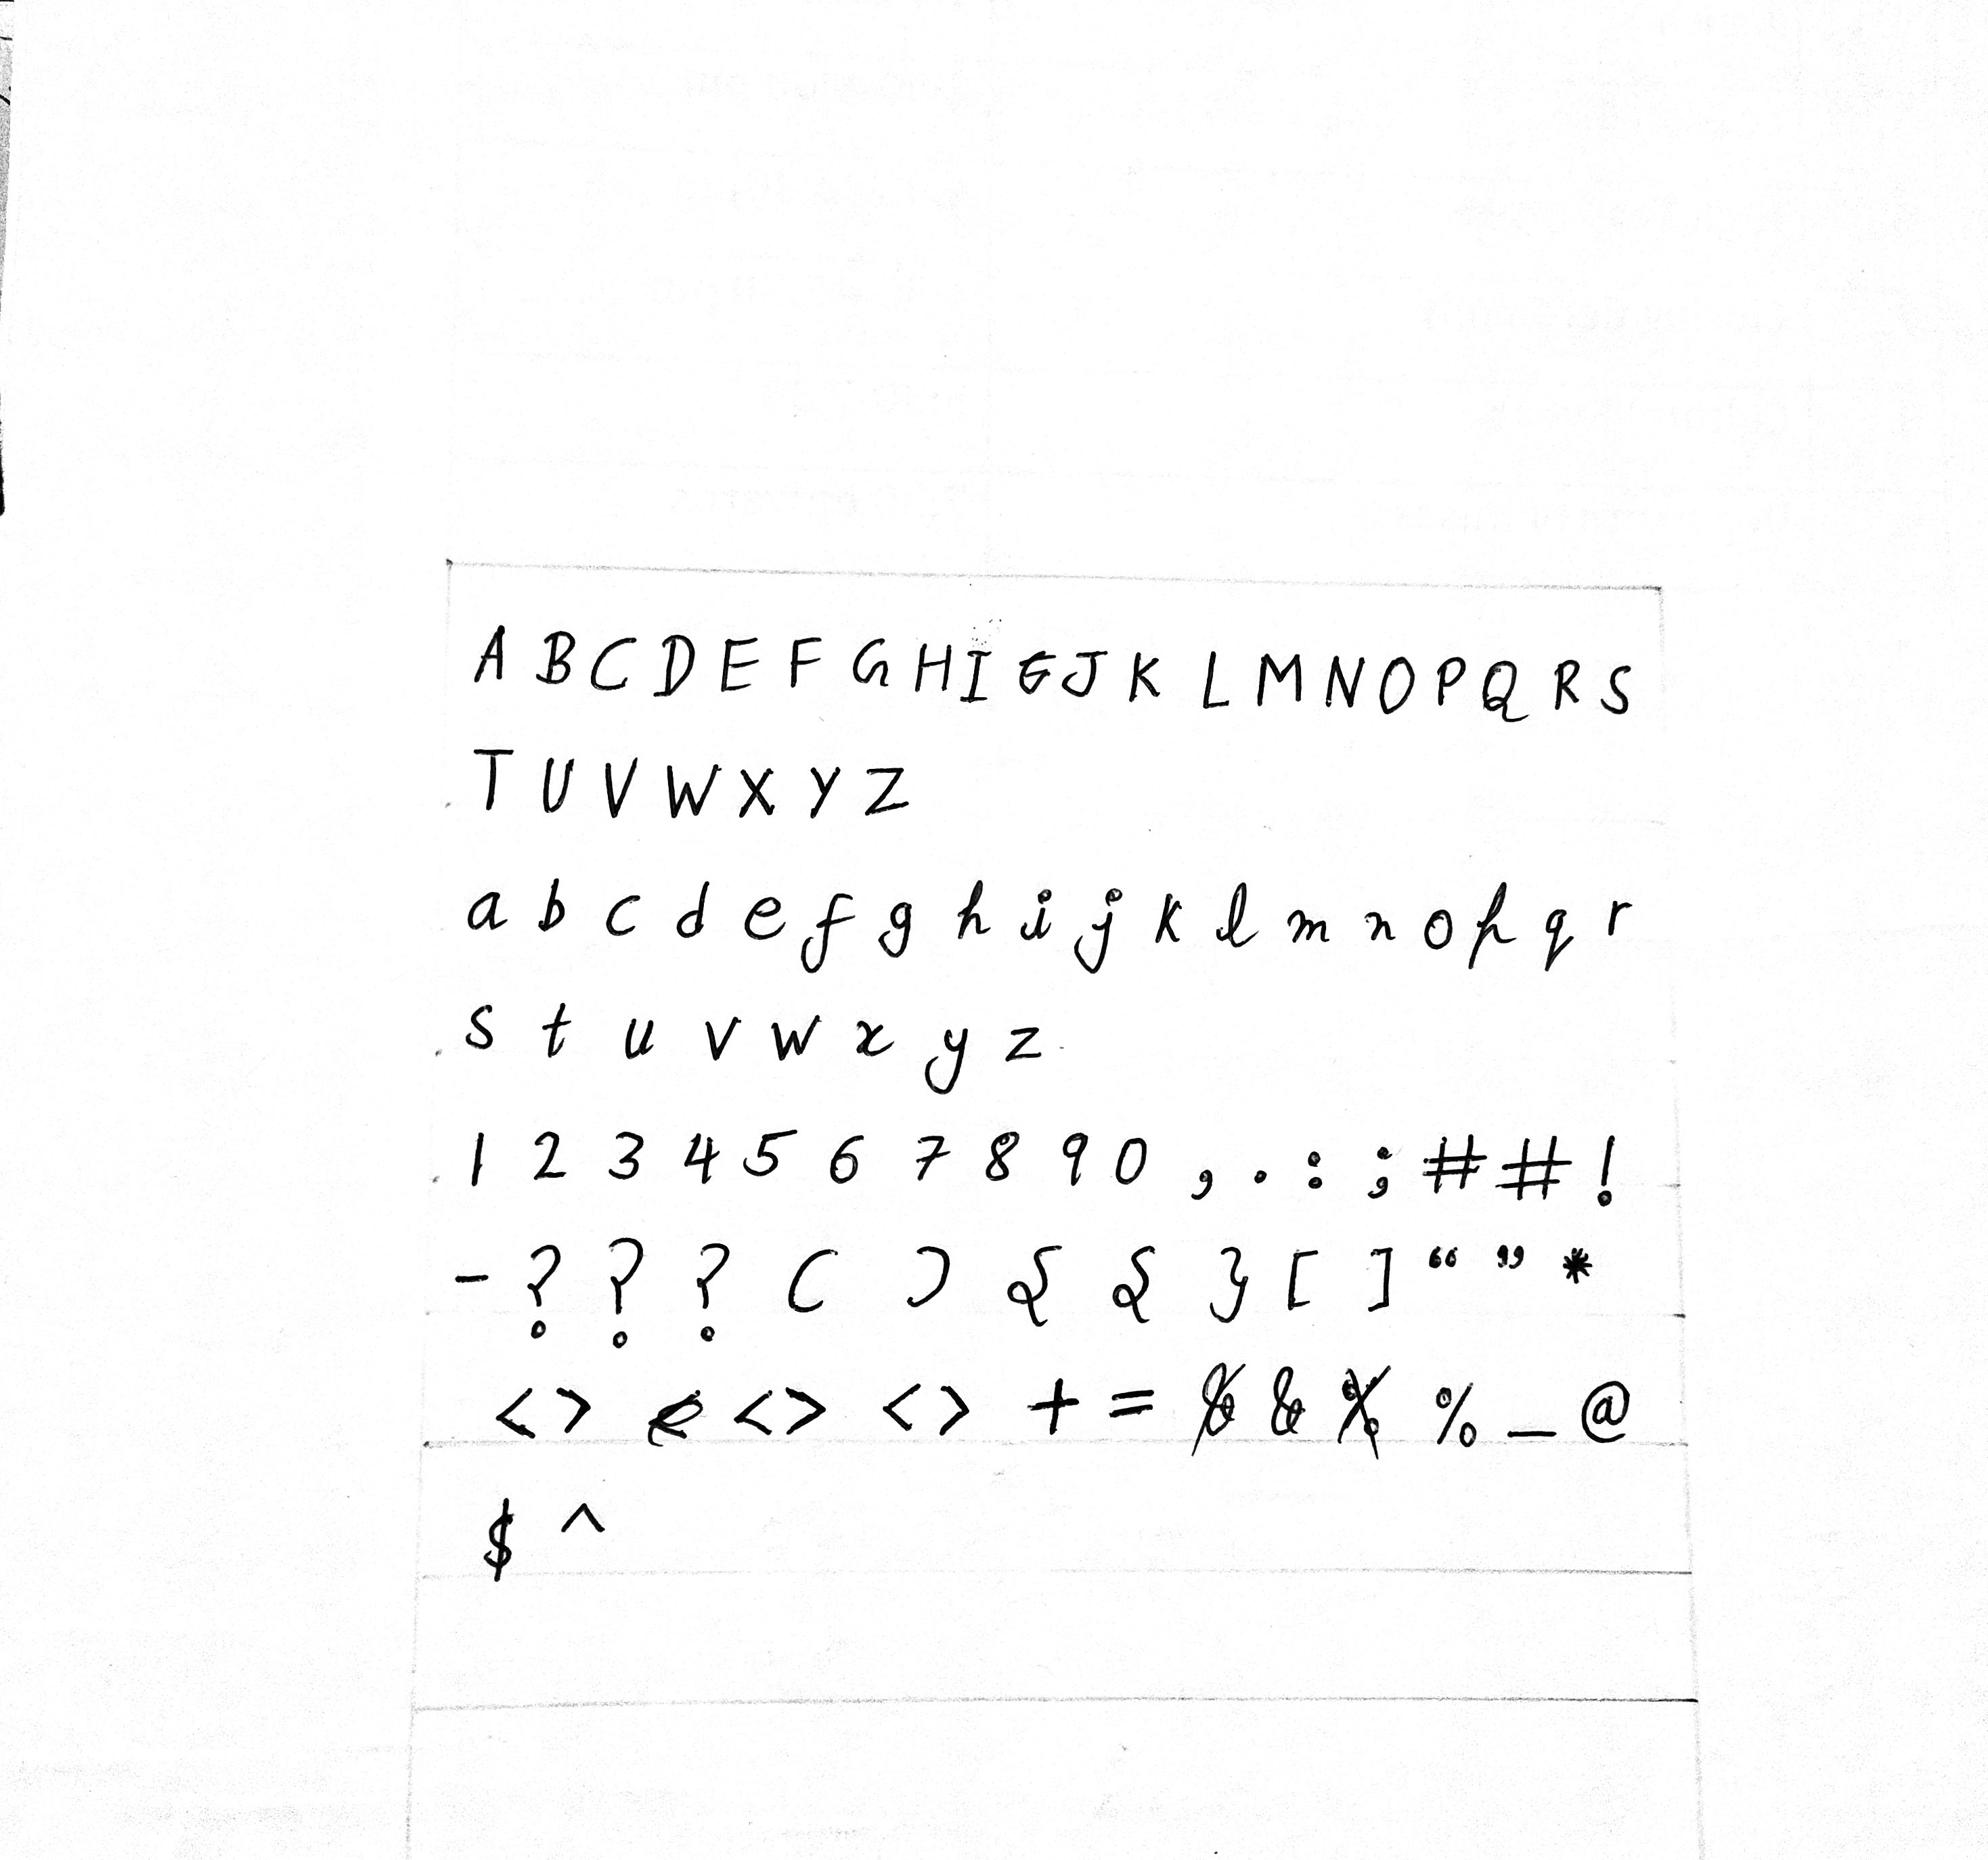 A B C D E F G H I J K L M N O P Q R S
T U V W X Y Z
a b c d e f g h i j k l m n o p q r
s t u v w x y z
1 2 3 4 5 6 7 8 9 0 , . : ; # # !
- ? ? ? ( ) { { } [ ] “ ” *
< > < > < > + = & % _ @
$ ^